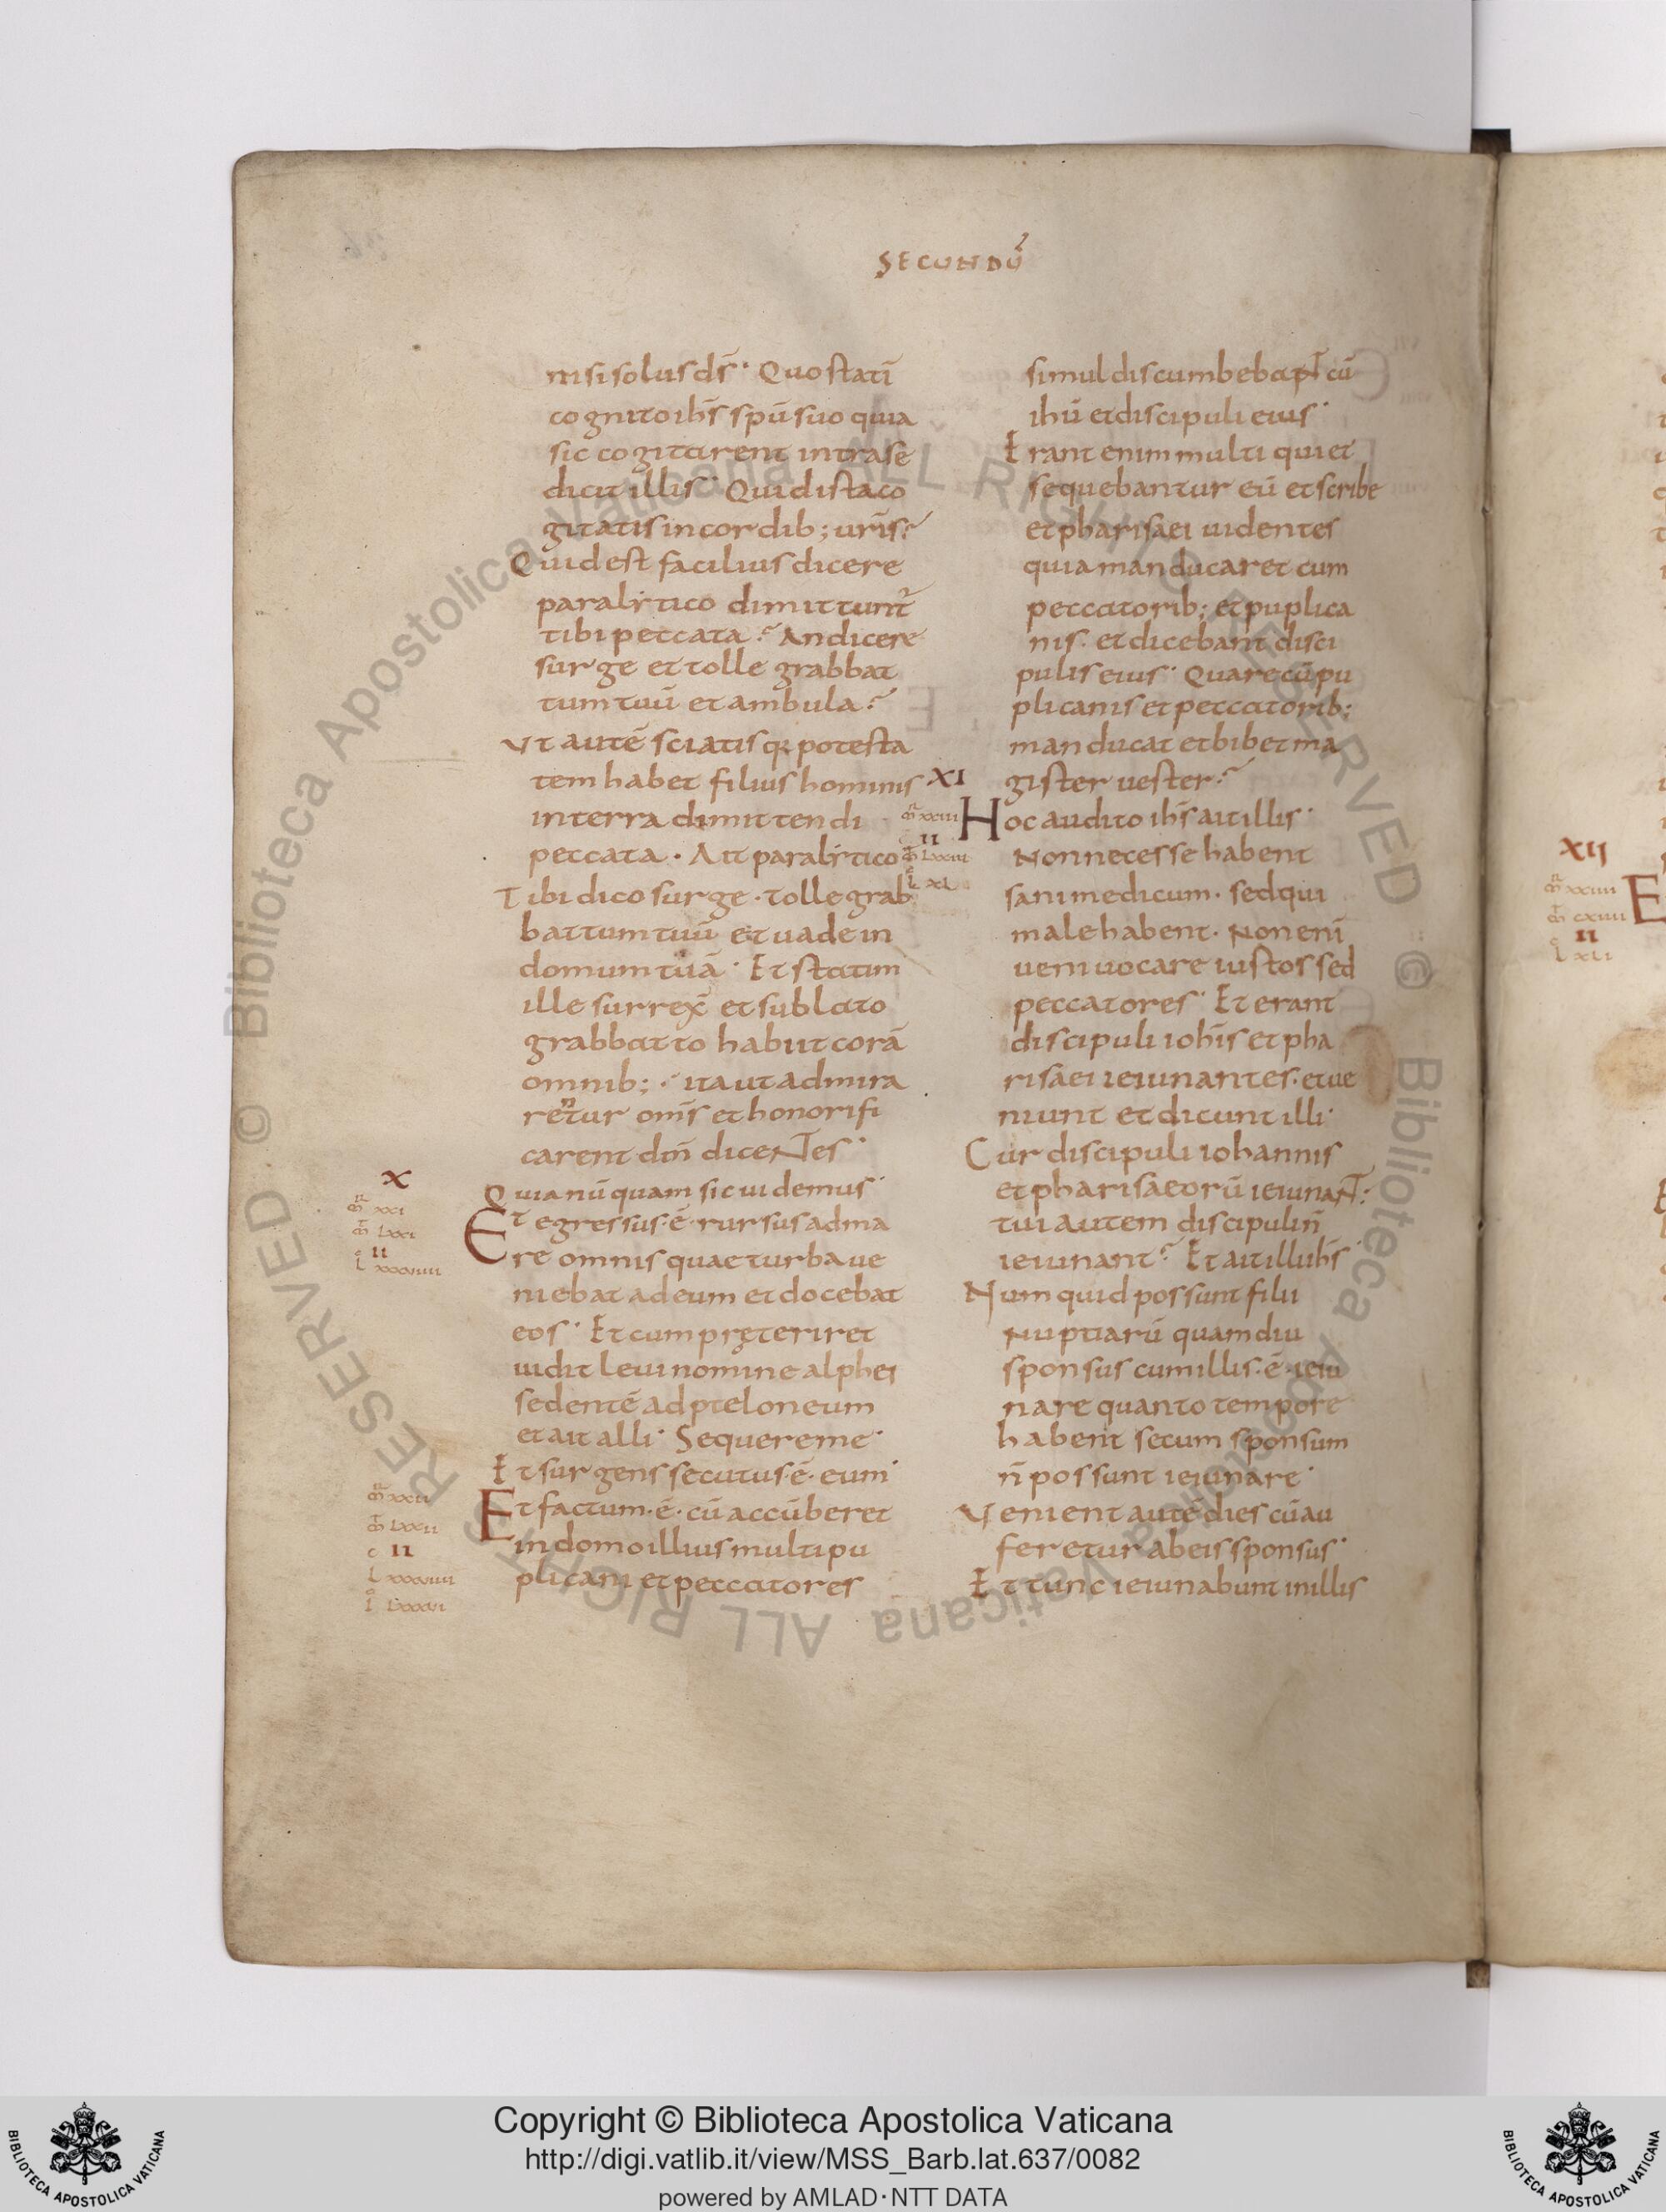 SECUNDŪ
nisi solus ds̄· Quo statī
cognito ihs̄ spū suo quia
sic cogitarent intra se
dicit illis· Quid ista co
gitatis in cordib; uris̄?
Quid est facilius dicere
paralitico dimittunt̄
tibi peccata? An dicere
surge et tolle grabbat
tum tuū et ambula?
Ut autē sciatis qꝫ potesta
tem habet filius hominis
in terra dimittendi
peccata· Ait paralitico
Tibi dico surge· tolle grab
battum tuū et uade in
domum tuā· Et statim
ille surrex̄ et sublato
grabbatto habiit corā
omnib;· ita ut admira
rentur oms̄ et honorifi
carent dm̄ dicentes·
X
Quia nūquam sic uidemus·
m̄ xxi
Et egressus·ē·rursus ad ma
m̄ lxxi
re omnis quae turba ue
II
l xxxuiii
niebat ad eum et docebat
eos· Et cum pręteriret
uidit leui nomine alphei
sedentē ad pteloneum
et ait alli· Sequere me·
Et surgens secutus·ē·eum·
m̄ xxii
Et factum·ē·cū accūberet
m̄ lxxii
in domo illius multi pu
II
plicani et peccatores
l xxxuiiii
simul discumbebant cū
ihū et discipuli eius·
Erant enim multi qui et
sequebantur eū et scribe
et pharisaei uidentes
quia manducaret cum
peccatorib; et puplica
nis· et dicebant disci
pulis eius· Quare cū pu
plicanis et peccatorib;
manducat et bibet ma
XI
gister uester?
m̄ xxiii
Hoc audito ihs̄ ait illis·
II
m̄ lxxiii
Non necesse habent
l xl
sani medicum· sed qui
male habent· Non enī
ueni uocare iustos sed
peccatores· Et erant
discipuli iohis̄ et pha
risaei ieiunantes· et ue
niunt et dicunt illi·
Cur discipuli iohannis
et pharisaeorū ieiunant:
tui autem discipuli n̄
ieiunant? Et ait illi ihs̄
Numquid possunt filii
nuptiarū quamdiu
sponsus cum illis·ē·ieiu
nare quanto tempore
habent secum sponsum
n̄ possunt ieiunare·
Uenient autē dies cū au
feretur ab eis sponsus·
Et tunc ieiunabunt in illis
XII
m̄ xxiiii
E
m̄ cxiiii
II
l xli
Copyright © Biblioteca Apostolica Vaticana
http://digi.vatlib.it/view/MSS_Barb.lat.637/0082
powered by AMLAD·NTT DATA
BIBLIOTECA APOSTOLICA VATICANA
BIBLIOTECA APOSTOLICA VATICANA
© Biblioteca Apostolica Vaticana ALL RIGHTS RESERVED © Biblioteca Apostolica Vaticana ALL RIGHTS RESERVED